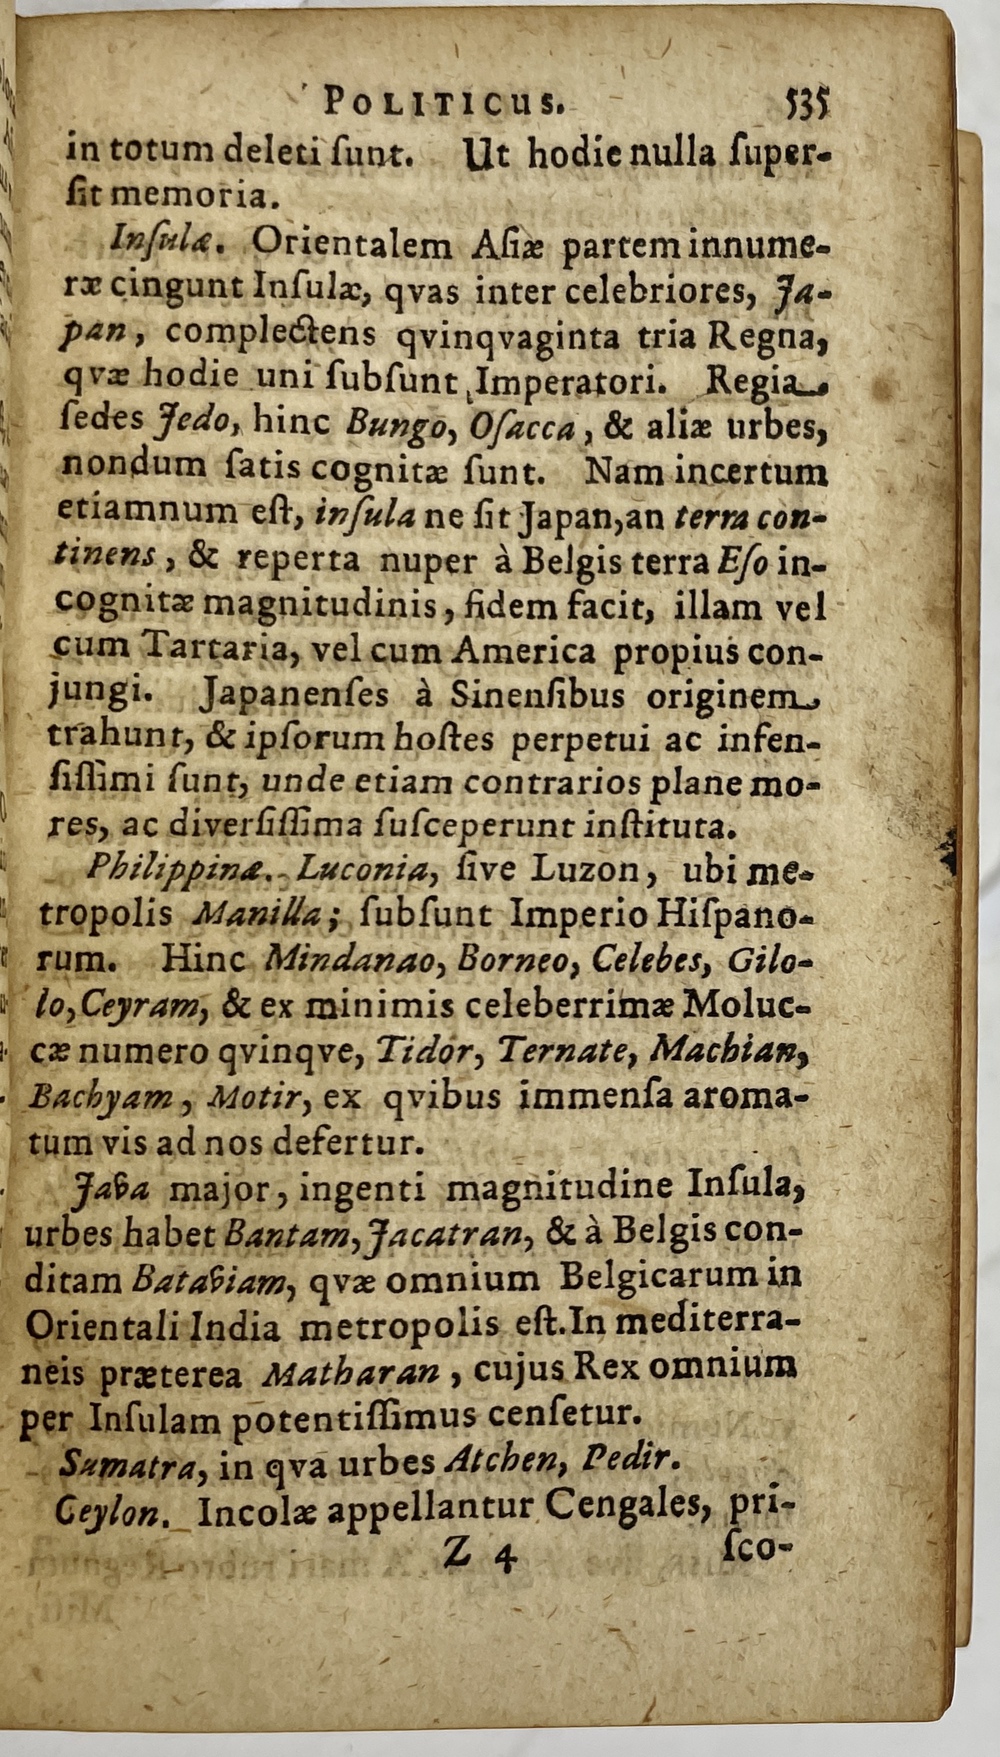 POLITICUS. 535
in totum deleti ſunt. Ut hodie nulla ſuper-
ſit memoria.
Inſulæ. Orientalem Aſiæ partem innume-
ræ cingunt Inſulæ, qvas inter celebriores, Ja-
pan, complectens qvinqvaginta tria Regna,
qvæ hodie uni ſubſunt Imperatori. Regia
ſedes Jedo, hinc Bungo, Oſacca, & aliæ urbes,
nondum ſatis cognitæ ſunt. Nam incertum
etiamnum eſt, inſula ne ſit Japan, an terra con-
tinens, & reperta nuper à Belgis terra Eſo in-
cognitæ magnitudinis, fidem facit, illam vel
cum Tartaria, vel cum America propius con-
jungi. Japanenſes à Sinenſibus originem
trahunt, & ipſorum hoſtes perpetui ac infen-
ſiſſimi ſunt, unde etiam contrarios plane mo-
res, ac diverſiſſima ſuſceperunt inſtituta.
Philippinæ. Luconia, ſive Luzon, ubi me-
tropolis Manilla; ſubſunt Imperio Hiſpano-
rum. Hinc Mindanao, Borneo, Celebes, Gilo-
lo, Ceyram, & ex minimis celeberrimæ Moluc-
cæ numero qvinqve, Tidor, Ternate, Machian,
Bachyam, Motir, ex qvibus immenſa aroma-
tum vis ad nos defertur.
Java major, ingenti magnitudine Inſula,
urbes habet Bantam, Jacatran, & à Belgis con-
ditam Bataviam, qvæ omnium Belgicarum in
Orientali India metropolis eſt. In mediterra-
neis præterea Matharan, cujus Rex omnium
per Inſulam potentiſſimus cenſetur.
Sumatra, in qva urbes Atchen, Pedir.
Ceylon. Incolæ appellantur Cengales, pri-
Z 4 ſco-